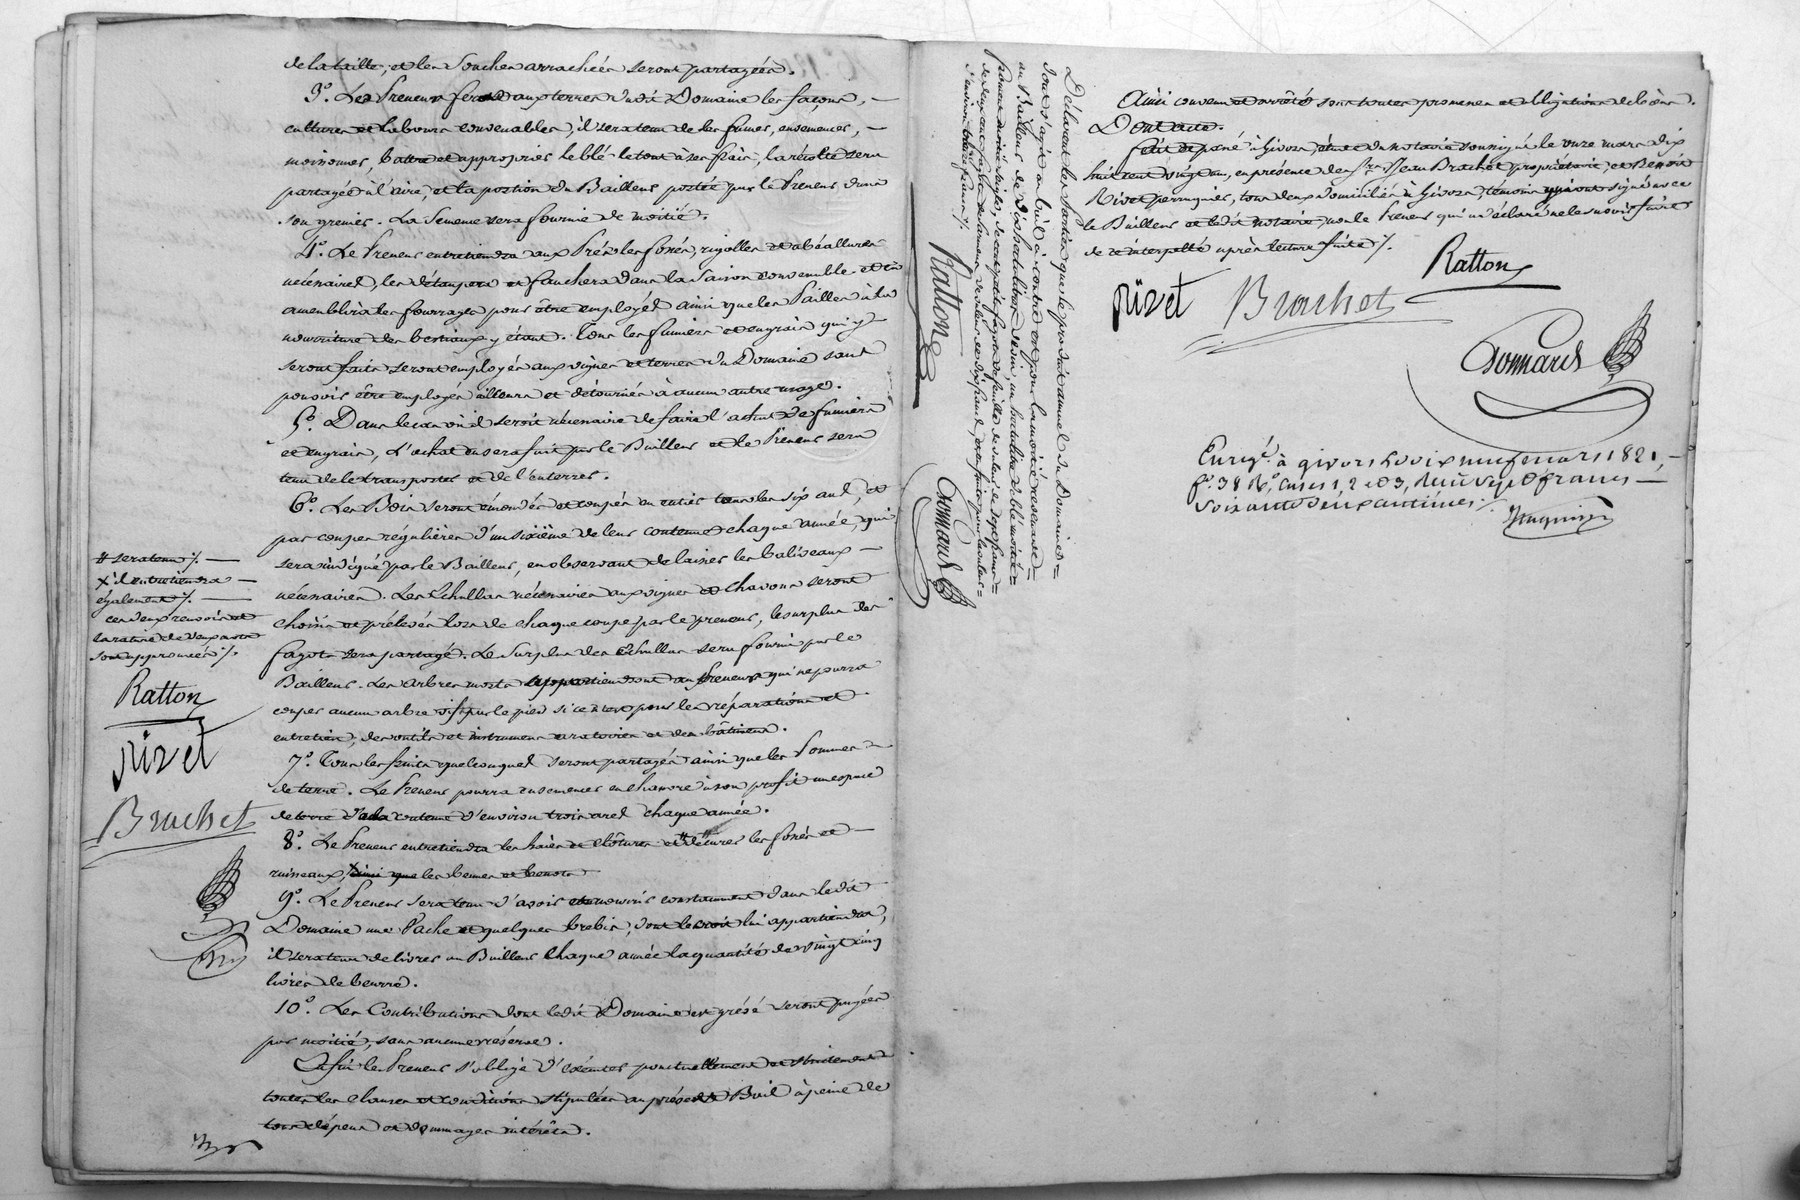 de la taille, et les souches arrachées seront partagées.
3.° Le Preneur fera aux terres dudit Domaine les façons,
cultures et labours convenables, il sera tenu de les fumer, ensemencer,
moissonner, battre et approprier le blé le tout à ses frais, la récolte sera
partagée à l'aire, et la portion du Bailleur portée par le Preneur, dans
son grenier. La Semence sera fournie de moitié.
4.° Le Preneur entretiendra aux Prés les fossés, rigolles et abéallures
nécessaires, les détaupera et fauchera dans la saison convenable et en
amenblira les fourrages pour être employés ainsi que les Pailles à la
nourriture des bestiaux y étant. Tous les fumiers et engrais qui y
seront faits seront employés aux vignes et terres du Domaine sans
pouvoir être employés ailleurs et détournés à aucun autre usage.
5.° Dans le cas où il seroit nécessaire de faire l'achat de fumiers
et engrais, l'achat en sera fait par le Bailleur et le Preneur sera
tenu de le transporter et de l'enterrer.
6.° Les Bois seront émondés et coupés en entier tous les six ans, et
par coupes régulières d'un sixième de leur contenue chaque année, qui
sera indiqué par le Bailleur, en observant de laisser les baliveaux
nécessaires. Les Echallas nécessaires aux vignes et Chavons seront
choisis et prélevés lors de chaque coupe par le preneur, le surplus des
fagots sera partagé. Le surplus des Echallas sera fourni par le
Bailleur. Les arbres morts appartiendront au Preneur qui ne pourra
couper aucun arbre vif par le pied si ce n'est pour les réparations et
entretien, des outils et instrumens aratoires et des bâtimens.
7.° Tous les fruits quelconques seront partagés ainsi que les Pommes
de terre. Le Preneur pourra ensemencer en chanvre à son profit un espace
de terre de la contenue d'environ trois ares chaque année.
8.° Le Preneur entretiendra les haies et clôtures et # de curer les fossés et
ruisseaux, x ainsi que les bennes et benots
9.° Le Preneur sera tenu d'avoir et nourrir constamment dans ledit
Domaine une Vache et quelques brebis, dont le croit lui appartiendra,
il sera tenu de livrer au Bailleur chaque année la quantité de vingt cinq
livres de beurre.
10.° Les Contributions dont ledit Domaine est grévé seront payées
par moitié, sans aucune réserve.
Enfin le Preneur s'oblige d'exécuter ponctuellement et strictement
toutes les clauses et conditions stipulées au présent Bail à peine de
tous dépens et dommages intérêts.
# sera tenu ./.
x il entretiendra
également ./.
ces deux renvois et
la rature de deux mots
sont approuvés ./.
Ratton
rivet
Brachet
Déclarent les parties que le produit annuel du Domaine
dont s'agit au bail ci-contre est pour la moitié réservée
au Bailleur de dix hectolitres de vin, un hectolitre de blé moitié
froment moitié seigle, de
Ratton
Donnaud
Ainsi convenu et arrêté sous toutes promesses et obligations de biens.
Dont acte.
Fait et passé à Givors, étude du notaire soussigné le onze mars dix
huit cent vingt un, en présence des Srs Jean Brachet propriétaire, et Benoit
Rivet perruquier, tous deux domiciliés à Givors, témoins qui ont signé avec
le Bailleur et ledit notaire, non le Preneur qui a déclaré ne le savoir faire
de ce interpellé après lecture faite ./.
Ratton
rivet
Brachet
Donnaud
Enregé. à givors le dix neuf mars 1821,
fo. 38 Ro. cases 1, 2 et 3, Reçu sept francs
soixante dix centimes